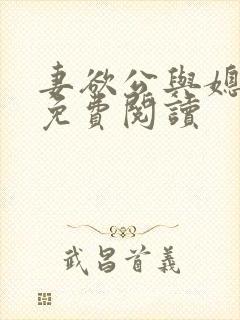 妻欲公與媳
免費閱讀
武昌首義